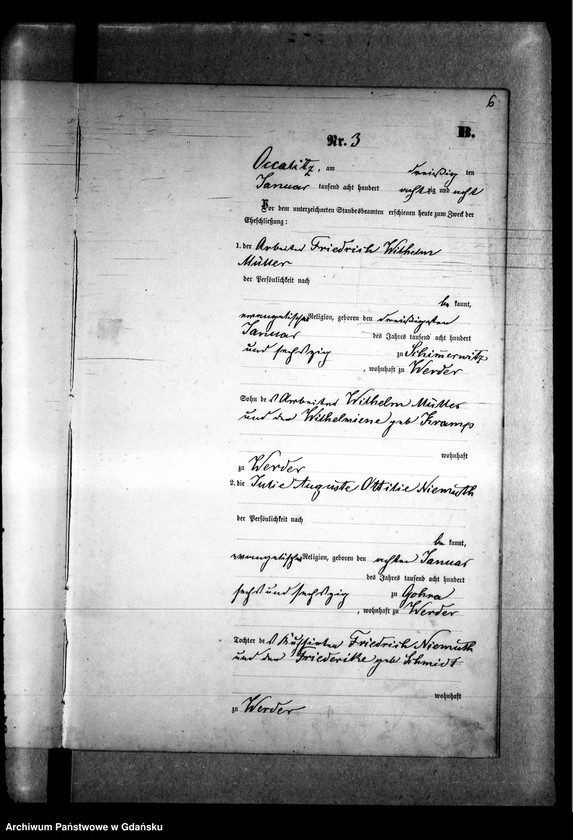 6
B.
Nr. 3
Occalitz, am dreißig ten
Januar tausend acht hundert achtzig und acht
Vor dem unterzeichneten Standesbeamten erschienen heute zum Zweck der
Eheschließung:
1. der Arbeiter Friedrich Wilhelm
Müller
der Persönlichkeit nach
be kannt,
evangelischer Religion, geboren den dreißigsten
Januar des Jahres tausend acht hundert
und sechszig zu Schimmerwitz
, wohnhaft zu Werder
Sohn des Arbeiters Wilhelm Müller
und der Wilhelmiene geb Kramp
wohnhaft
zu Werder
2. die Julie Auguste Ottilie Niemuth
der Persönlichkeit nach
be kannt,
evangelischer Religion, geboren den achten Januar
des Jahres tausend acht hundert
sechs und sechszig zu Gohra
, wohnhaft zu Werder
Tochter des Friedrich Niemuth
und der Friederike geb Schmidt
wohnhaft
zu Werder
Archiwum Państwowe w Gdańsku